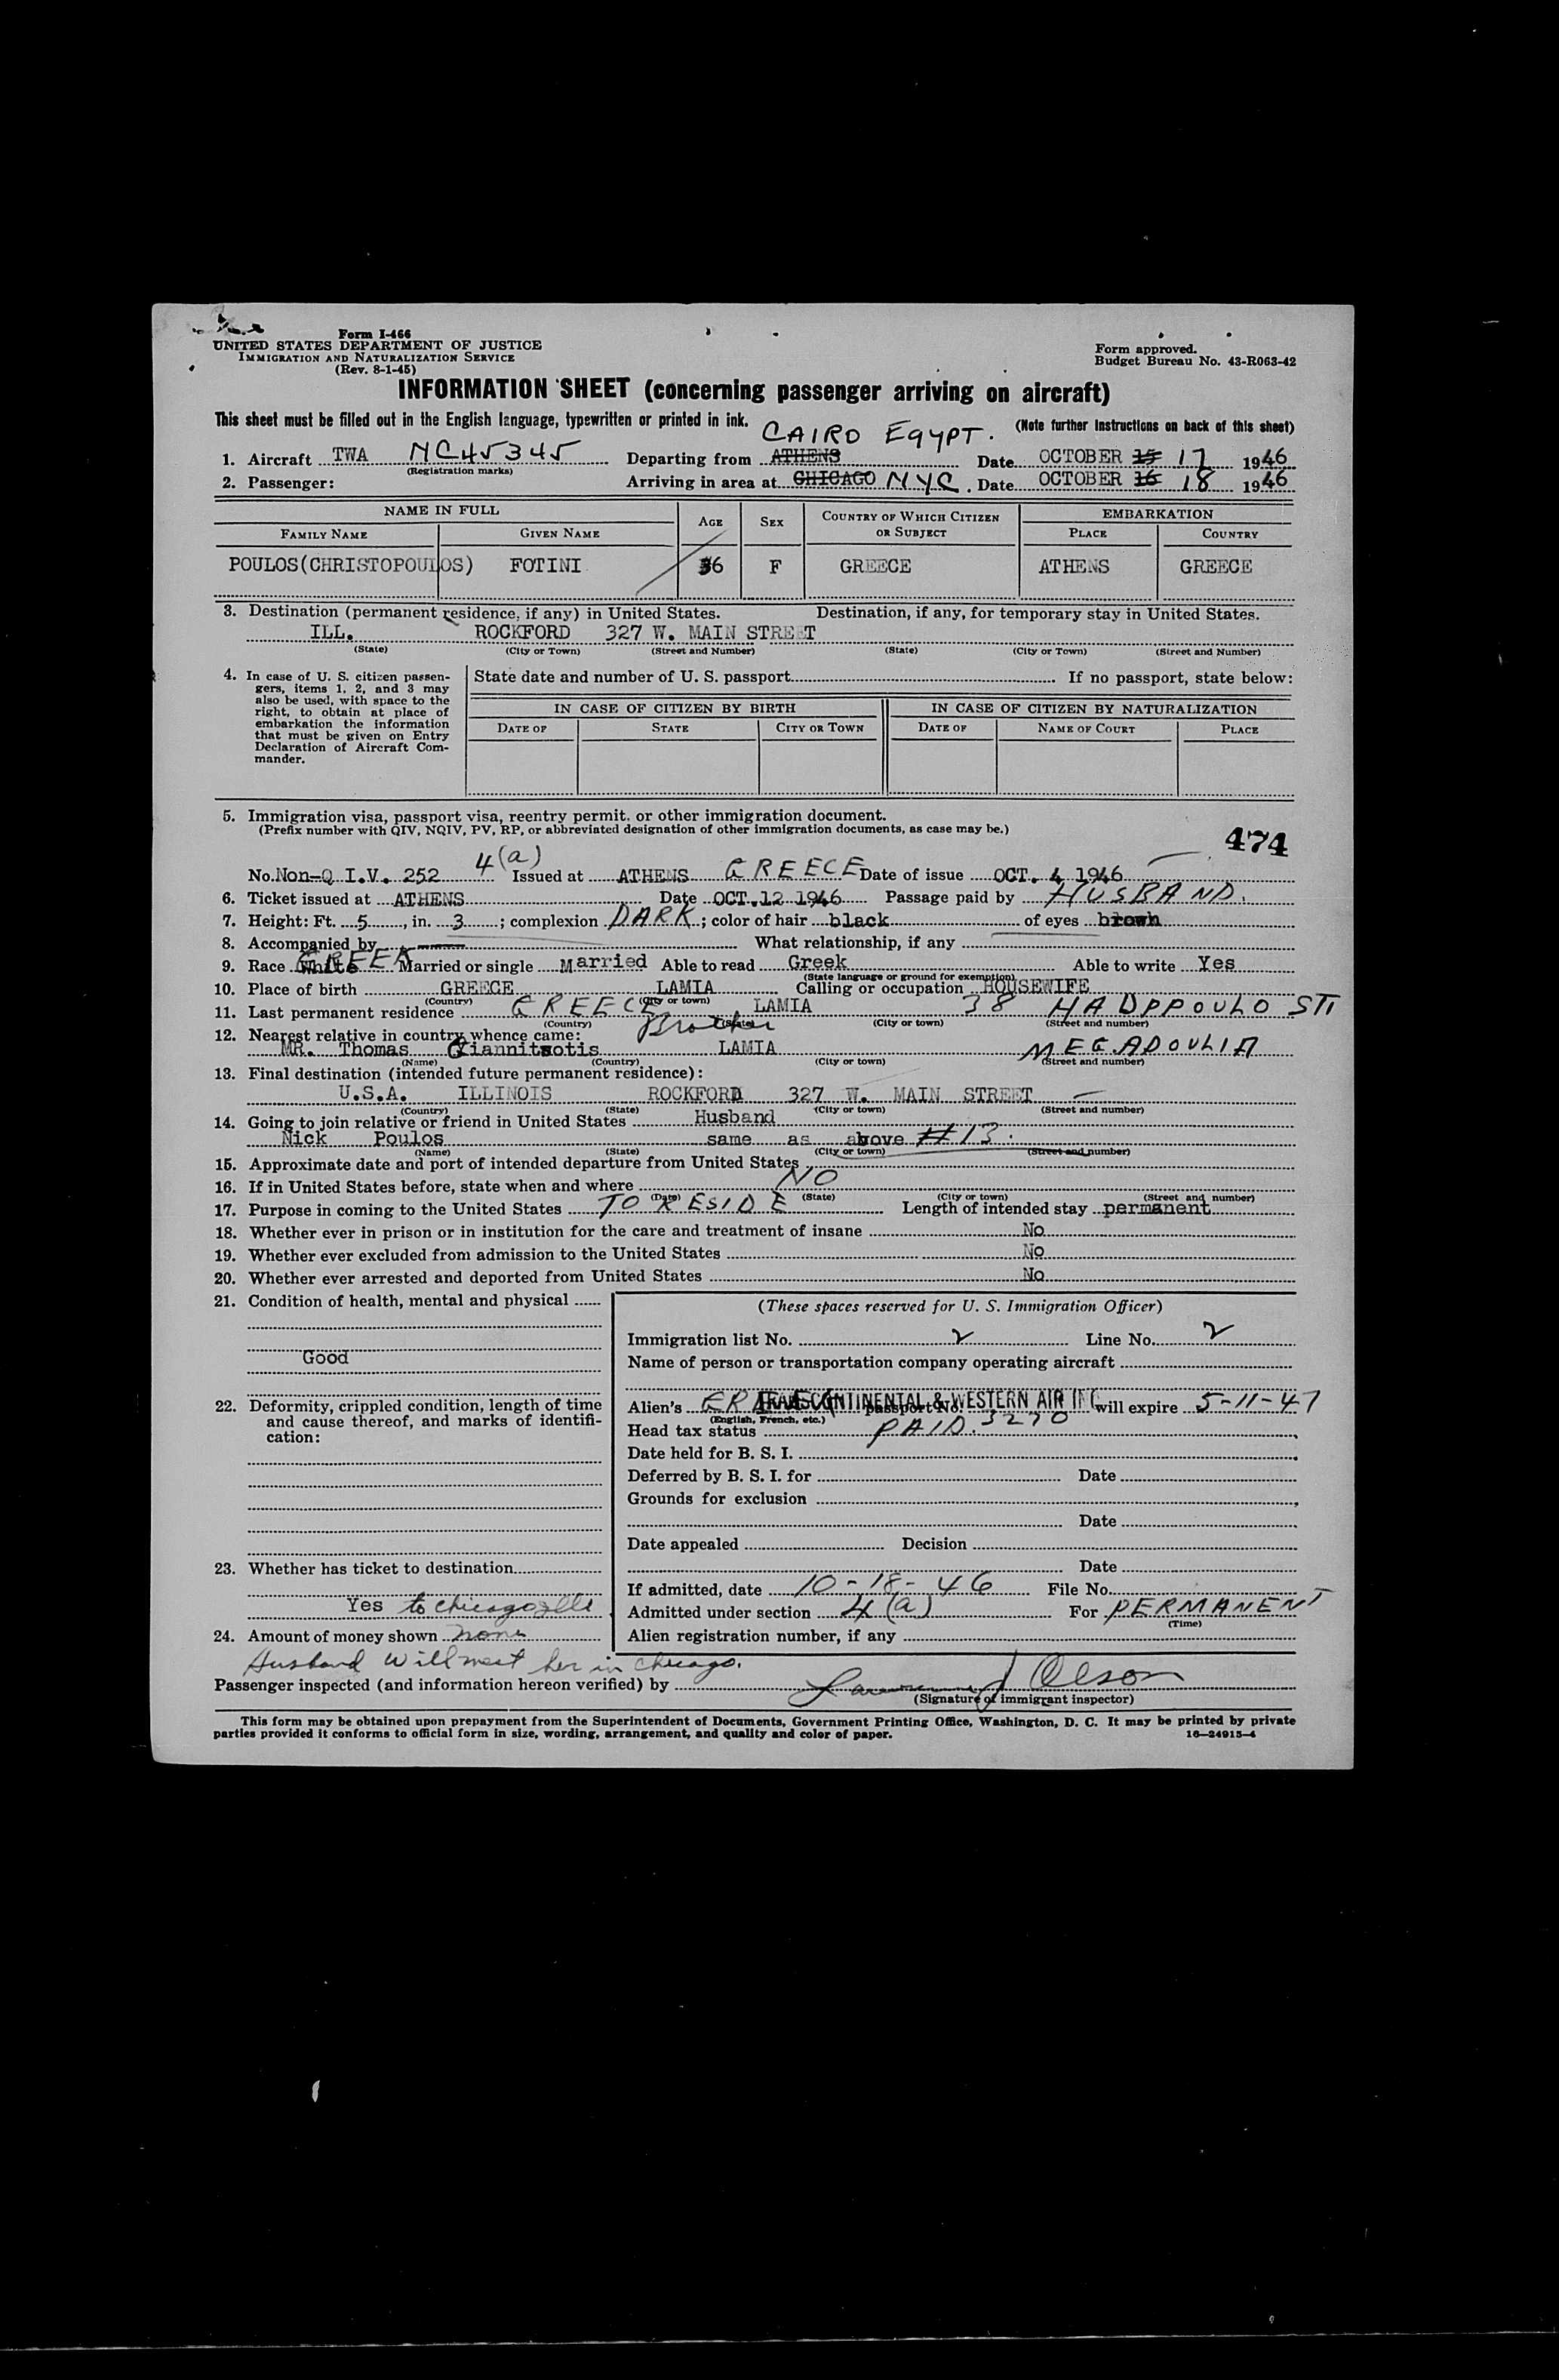 Form I-466
UNITED STATES DEPARTMENT OF JUSTICE
IMMIGRATION AND NATURALIZATION SERVICE
(Rev. 8-1-45)
Form approved.
Budget Bureau No. 43-R063-42
INFORMATION SHEET (concerning passenger arriving on aircraft)
This sheet must be filled out in the English language, typewritten or printed in ink.
(Note further instructions on back of this sheet)
CAIRO EGYPT.
1. Aircraft TWA NC45345 Departing from ATHENS Date OCTOBER 15 17 1946
(Registration marks)
2. Passenger: Arriving in area at CHICAGO NYC. Date OCTOBER 16 18 1946
NAME IN FULL AGE SEX COUNTRY OF WHICH CITIZEN OR SUBJECT EMBARKATION
FAMILY NAME GIVEN NAME PLACE COUNTRY
POULOS(CHRISTOPOULOS) FOTINI 36 F GREECE ATHENS GREECE
3. Destination (permanent residence, if any) in United States. Destination, if any, for temporary stay in United States.
ILL. ROCKFORD 327 W. MAIN STREET
(State) (City or Town) (Street and Number) (State) (City or Town) (Street and Number)
4. In case of U. S. citizen passengers, items 1, 2, and 3 may also be used, with space to the right, to obtain at place of embarkation the information that must be given on Entry Declaration of Aircraft Commander.
State date and number of U. S. passport If no passport, state below:
IN CASE OF CITIZEN BY BIRTH IN CASE OF CITIZEN BY NATURALIZATION
DATE OF STATE CITY OR TOWN DATE OF NAME OF COURT PLACE
5. Immigration visa, passport visa, reentry permit, or other immigration document.
(Prefix number with QIV, NQIV, PV, RP, or abbreviated designation of other immigration documents, as case may be.)
474
4(a)
No. Non-Q I.V. 252 Issued at ATHENS GREECE Date of issue OCT. 4 1946
6. Ticket issued at ATHENS Date OCT.12 1946 Passage paid by HUSBAND.
7. Height: Ft. 5, in. 3; complexion DARK; color of hair black of eyes brown
8. Accompanied by What relationship, if any
9. Race White GREEK Married or single Married Able to read Greek Able to write Yes
(State language or ground for exemption)
10. Place of birth GREECE LAMIA Calling or occupation HOUSEWIFE
(Country) (City or town)
11. Last permanent residence GREECE LAMIA 38 HADPPOULO STT
(Country) (State) (City or town) (Street and number)
12. Nearest relative in country whence came: Brother
MR. Thomas Giannitsotis LAMIA MEGADOULIA
(Name) (Country) (City or town) (Street and number)
13. Final destination (intended future permanent residence):
U.S.A. ILLINOIS ROCKFORD 327 W. MAIN STREET
(Country) (State) (City or town) (Street and number)
14. Going to join relative or friend in United States Husband
Nick Poulos same as above #13.
(Name) (State) (City or town) (Street and number)
15. Approximate date and port of intended departure from United States
16. If in United States before, state when and where NO
(Date) (State) (City or town) (Street and number)
17. Purpose in coming to the United States TO RESIDE Length of intended stay permanent
18. Whether ever in prison or in institution for the care and treatment of insane No
19. Whether ever excluded from admission to the United States No
20. Whether ever arrested and deported from United States No
21. Condition of health, mental and physical
Good
22. Deformity, crippled condition, length of time and cause thereof, and marks of identification:
23. Whether has ticket to destination
Yes to Chicago Ills
24. Amount of money shown none
Husband will meet her in Chicago.
(These spaces reserved for U. S. Immigration Officer)
Immigration list No. 2 Line No. 2
Name of person or transportation company operating aircraft
TRANSCONTINENTAL & WESTERN AIR INC
Alien's passport No. 3270 will expire 5-11-47
(English, French, etc.)
Head tax status PAID.
Date held for B. S. I.
Deferred by B. S. I. for Date
Grounds for exclusion
Date
Date appealed Decision
Date
If admitted, date 10-18-46 File No.
Admitted under section 4(a) For PERMANENT
(Time)
Alien registration number, if any
Passenger inspected (and information hereon verified) by Olson
(Signature of immigrant inspector)
This form may be obtained upon prepayment from the Superintendent of Documents, Government Printing Office, Washington, D. C. It may be printed by private
parties provided it conforms to official form in size, wording, arrangement, and quality and color of paper.
16-24915-4